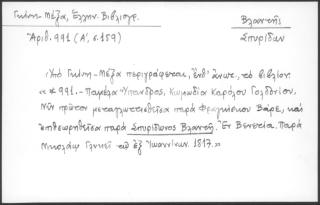 Γκίνη-Μέξα, Ἑλλην. Βιβλιογρ.
Βλαντῆς
Ἀριθ. 991 (Α', σ. 159)
Σπυρίδων
Ὑπό Γκίνη-Μέξα περιγράφεται, ἔνθ' ἄνωτ., τό βιβλίον
«* 991.- Παμέλα Ὕπανδρος, Κωμωδία Καρόλου Γολδονίου,
Νῦν πρῶτον μεταγλωττισθεῖσα παρά Φραγκίσκου Βάρε, καί
ἐπιθεωρηθεῖσα παρά Σπυρίδωνος Βλαντῆ. Ἐν Βενετία. Παρά
Νικολάῳ Γλυκεῖ τῷ ἐξ Ἰωαννίνων. 1817.»